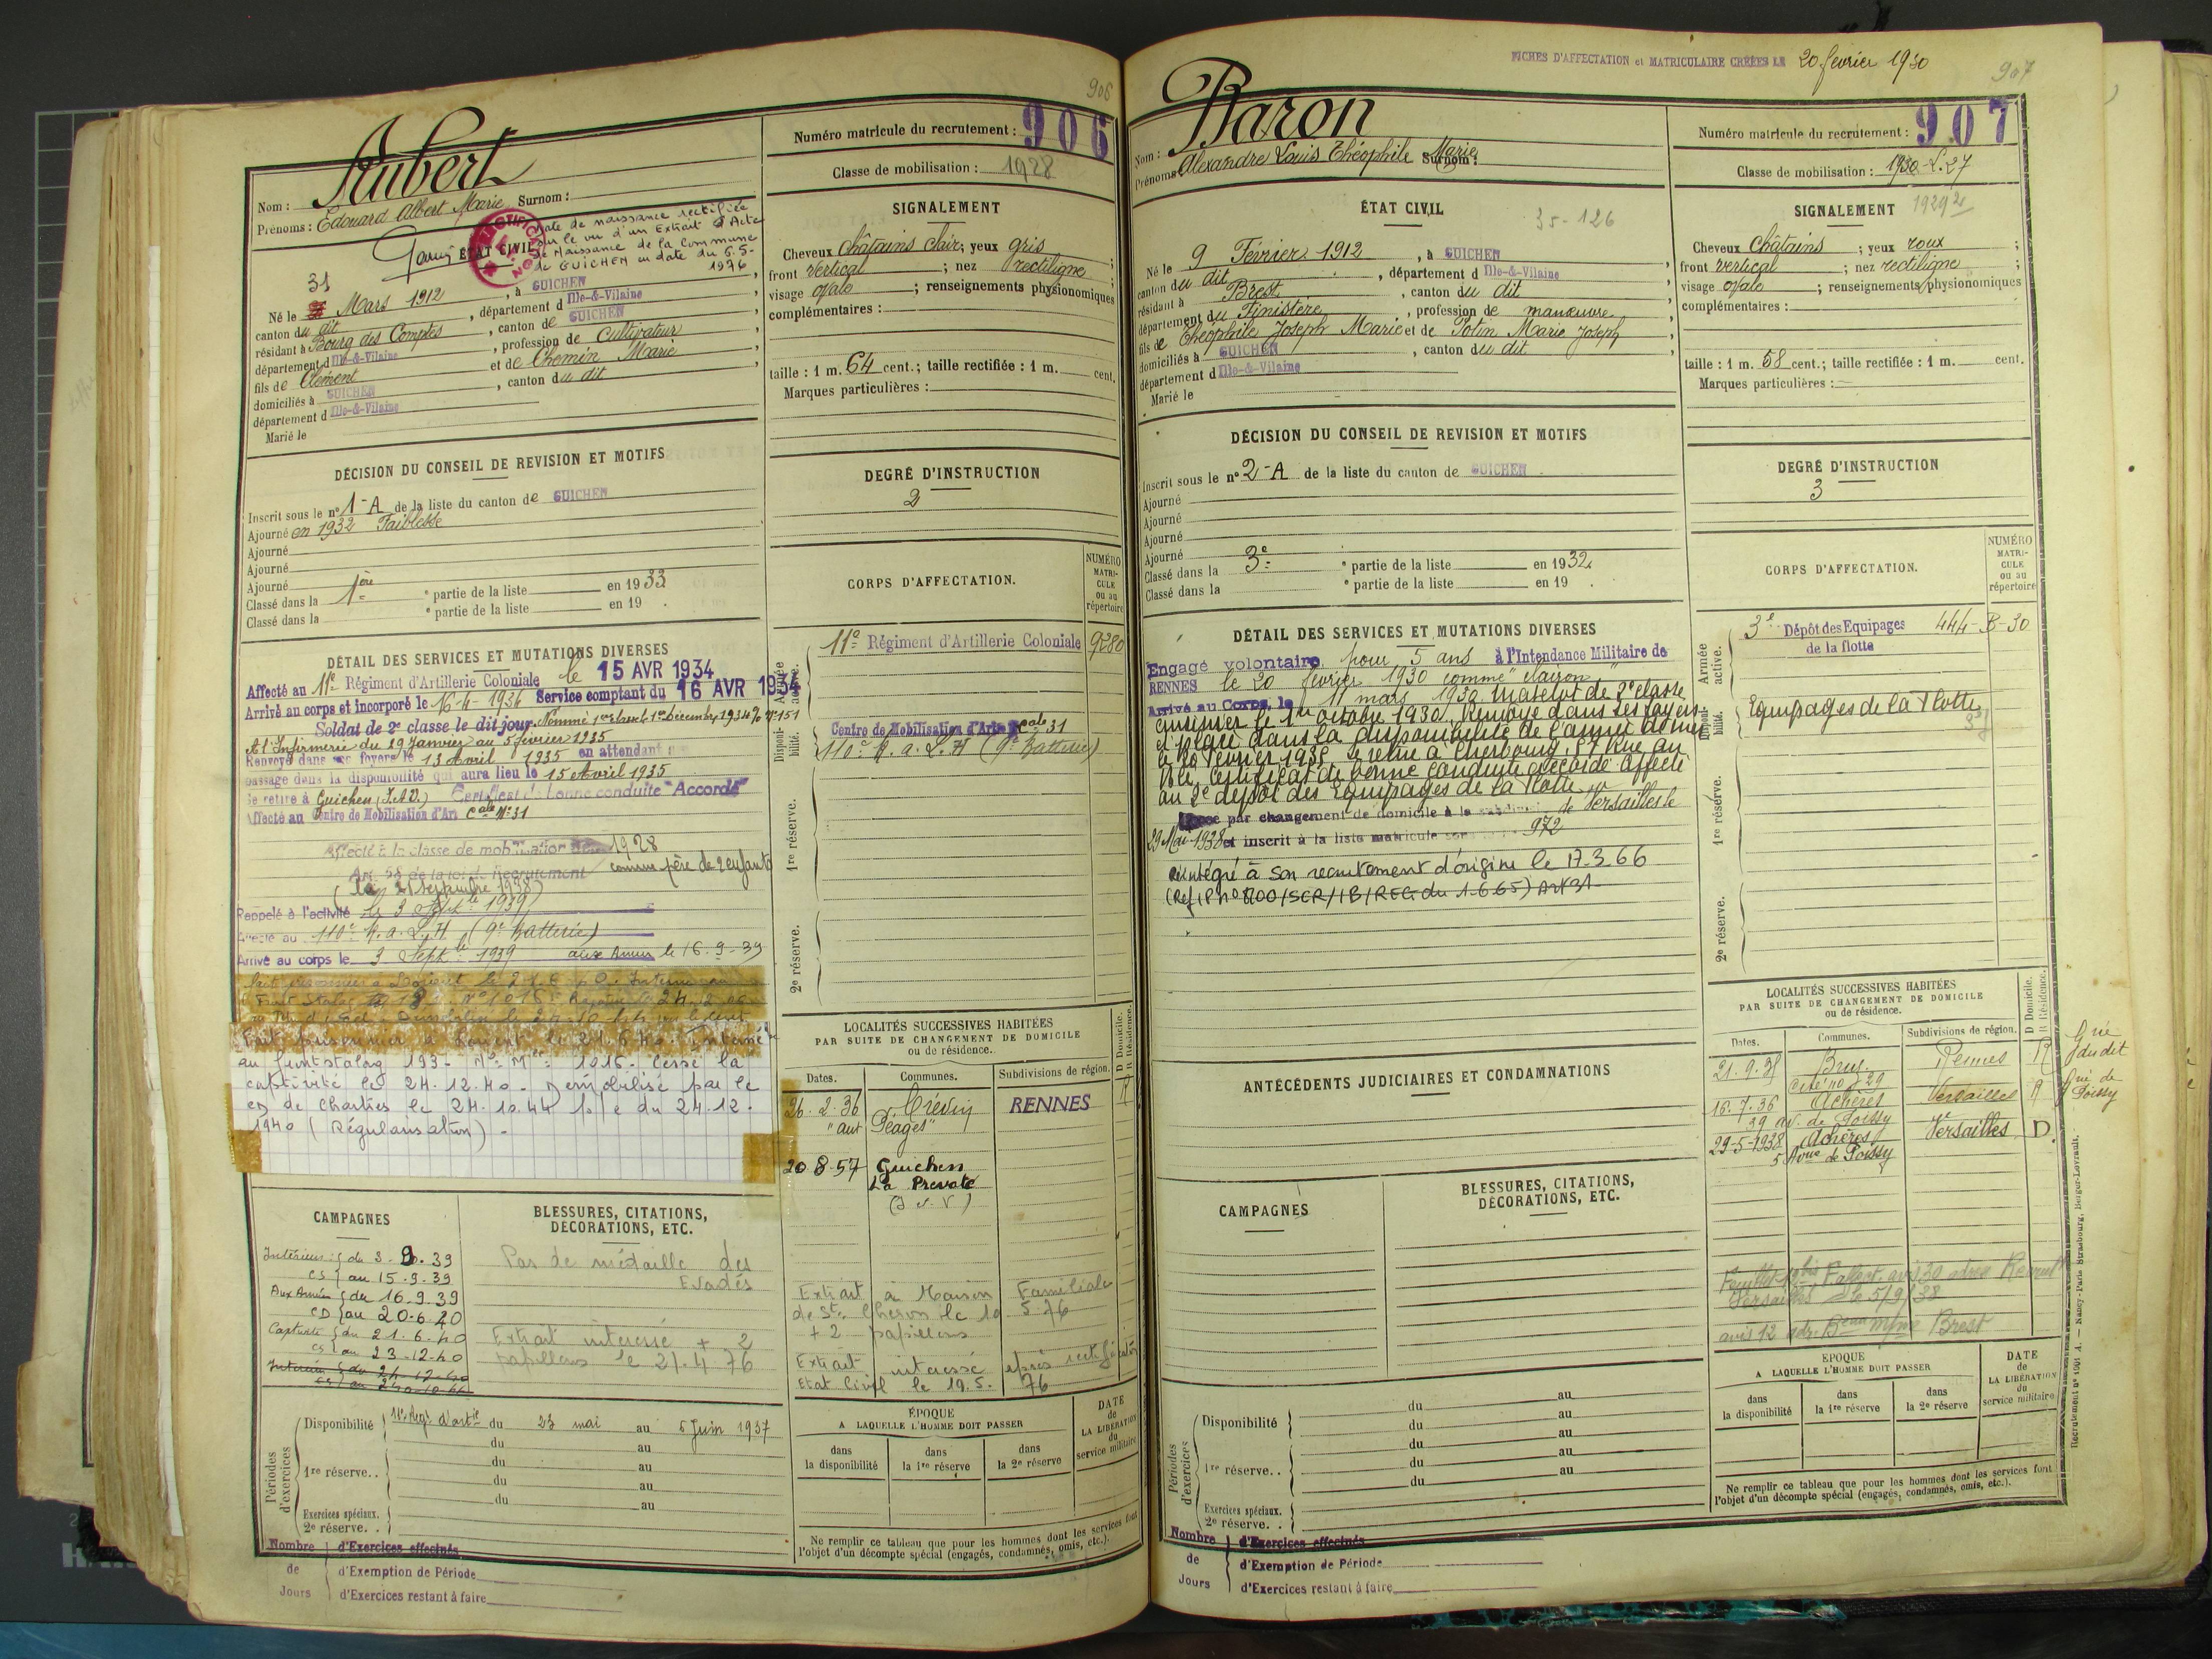 906
906
Numéro matricule du recrutement :
Classe de mobilisation : 1928
Aubert
Nom :
Prénoms : Edouard Albert Marie Surnom :
ÉTAT CIVIL
Date de naissance rectifiée
sur le vu d'un Extrait d'Acte
de Naissance de la Commune
de GUICHEN en date du 6-5-
1976
Né le 31 Mars 1912, à GUICHEN
canton du dit, département d Ille-&-Vilaine
résidant à Bourg des Comptes, canton de GUICHEN
département d Ille-&-Vilaine, profession de Cultivateur
fils de Clément et de Chemin Marie
domiciliés à GUICHEN, canton du dit
département d Ille-&-Vilaine
Marié le
SIGNALEMENT
Cheveux châtains clair; yeux gris ;
front vertical ; nez rectiligne ;
visage ovale ; renseignements physionomiques
complémentaires :
taille : 1 m. 64 cent.; taille rectifiée : 1 m. cent.
Marques particulières :
DÉCISION DU CONSEIL DE REVISION ET MOTIFS
Inscrit sous le n° 1-A de la liste du canton de GUICHEN
Ajourné en 1932 Faiblesse
Ajourné
Ajourné
Ajourné
Classé dans la 1ère e partie de la liste en 1933
Classé dans la e partie de la liste en 19 .
DEGRÉ D'INSTRUCTION
2
CORPS D'AFFECTATION.
NUMÉRO MATRI-CULE ou au répertoire
Armée active.
11e Régiment d'Artillerie Coloniale 9280
Disponi-bilité.
Centre de Mobilisation d'Artie Cale 31
110e R.a.L.H (9e Batterie)
1re réserve.
2e réserve.
DÉTAIL DES SERVICES ET MUTATIONS DIVERSES
Affecté au 11e Régiment d'Artillerie Coloniale le 15 AVR 1934
Arrivé au corps et incorporé le 16-4-1934 Service comptant du 16 AVR 1934
Soldat de 2e classe le dit jour. Nommé 1ere classe le 1er Décembre 1934 % N°151
A l'Infirmerie du 29 Janvier au 5 février 1935
Renvoyé dans ses foyers le 13 Avril 1935 en attendant son
passage dans la disponibilité qui aura lieu le 15 Avril 1935
Se retire à Guichen (I.&V.) Certificat de bonne conduite "Accordé"
Affecté au Centre de Mobilisation d'Art Cale N°31
Affecté à la classe de mobilisation de 1928
Art. 58 de la loi de Recrutement comme père de 2 enfants
(Le 21 septembre 1938)
Rappelé à l'activité le 3 Septbre 1939
Affecté au 110e R.a.L.H (9e Batterie)
Arrivé au corps le 3 Septbre 1939 aux Armées le 16-9-39
Fait prisonnier à Lorient le 21.6.40. Interné
au Frontstalag 193 - N° Mle 1016. Cessé la
captivité le 24.12.40. Démobilisé par le
CD de Chartres le 24.10.44 p. c du 24.12.
1940 (Régularisation) -
LOCALITÉS SUCCESSIVES HABITÉES
PAR SUITE DE CHANGEMENT DE DOMICILE
ou de résidence.
D Domicile. R Résidence.
Dates. Communes. Subdivisions de région.
26.2.36 Crévin RENNES R
"aux Péages"
20-8-57 Guichen
La Prevoté
(I.&.V)
Extrait à Maison Familiale
de St Chéron le 10 5-76
+ 2 papillons
Extrait intéressé après rectification
Etat Civil le 19.5. 76
CAMPAGNES
Intérieur { du 3.9.39
CS { au 15.9.39
Aux Armées { du 16.9.39
CD { au 20.6.40
Captivité { du 21.6.40
CS { au 23-12-40
Intérieur { du 24-12-40
CS { au 24-10-44
BLESSURES, CITATIONS, DÉCORATIONS, ETC.
Pas de médaille des
Evadés
Extrait intéressé + 2
papillons le 21.4.76
Périodes d'exercices
Disponibilité { 11e Régt d'artie du 23 mai au 5 Juin 1937
du au
1re réserve.. du au
du au
du au
Exercices spéciaux.
2e réserve. .
ÉPOQUE
A LAQUELLE L'HOMME DOIT PASSER
dans la disponibilité
dans la 1re réserve
dans la 2e réserve
DATE de LA LIBÉRATION du service militaire
Ne remplir ce tableau que pour les hommes dont les services font
l'objet d'un décompte spécial (engagés, condamnés, omis, etc.).
Nombre de Jours
d'Exercices effectués
d'Exemption de Période
d'Exercices restant à faire
FICHES D'AFFECTATION et MATRICULAIRE CRÉÉES LE 20 février 1930
907
907
Numéro matricule du recrutement :
Classe de mobilisation : 1930-L.27
Baron
Nom :
Prénoms : Alexandre Louis Théophile Marie Surnom :
ÉTAT CIVIL
35-126
Né le 9 Février 1912, à GUICHEN
canton du dit, département d Ille-&-Vilaine
résidant à Brest, canton du dit
département du Finistère, profession de manœuvre
fils de Théophile Joseph Marie et de Potin Marie Joseph
domiciliés à GUICHEN, canton du dit
département d Ille-&-Vilaine
Marié le
SIGNALEMENT
Cheveux Châtains ; yeux roux ;
front vertical ; nez rectiligne ;
visage ovale ; renseignements physionomiques
complémentaires :
taille : 1 m. 58 cent.; taille rectifiée : 1 m. cent.
Marques particulières :
DÉCISION DU CONSEIL DE REVISION ET MOTIFS
Inscrit sous le n° 2-A de la liste du canton de GUICHEN
Ajourné
Ajourné
Ajourné
Ajourné
Classé dans la 3e e partie de la liste en 1932.
Classé dans la e partie de la liste en 19 .
DEGRÉ D'INSTRUCTION
3
CORPS D'AFFECTATION.
NUMÉRO MATRI-CULE ou au répertoire
Armée active.
3e Dépôt des Equipages 444-B-30
de la flotte
Disponi-bilité.
Equipages de la Flotte
1re réserve.
2e réserve.
DÉTAIL DES SERVICES ET MUTATIONS DIVERSES
Engagé volontaire pour 5 ans à l'Intendance Militaire de
RENNES le 20 février 1930 comme "clairon"
Arrivé au Corps, le 11 mars 1930. Matelot de 2e classe
cuisinier le 1er octobre 1930. Renvoyé dans ses foyers
et placé dans la disponibilité de l'armée de mer
le 20 février 1935. Se retire à Cherbourg, 57 Rue au
Blé. Certificat de bonne conduite accordé. Affecté
au 2e dépôt des Equipages de la Flotte.
Passé par changement de domicile à la subdivision de Versailles le
29 Mai 1938 et inscrit à la liste matricule sous le n° 972
Réintégré à son recrutement d'origine le 17-3-66
(Ref. IP n° 8700/SCR/1B/REG du 1.6.65) Art 31
LOCALITÉS SUCCESSIVES HABITÉES
PAR SUITE DE CHANGEMENT DE DOMICILE
ou de résidence.
D Domicile. R Résidence.
Dates. Communes. Subdivisions de région.
21.9.35 Bruz Rennes R Gie du dit
Cité n° 29
16.7.36 Achères Versailles R Gie de Poissy
39 av. de Poissy
29-5-1938 Achères Versailles D
5 Avue de Poissy
avis 12 adr. Beau Brest
ANTÉCÉDENTS JUDICIAIRES ET CONDAMNATIONS
CAMPAGNES
BLESSURES, CITATIONS, DÉCORATIONS, ETC.
Périodes d'exercices
Disponibilité { du au
du au
1re réserve.. du au
du au
du au
Exercices spéciaux.
2e réserve. .
ÉPOQUE
A LAQUELLE L'HOMME DOIT PASSER
dans la disponibilité
dans la 1re réserve
dans la 2e réserve
DATE de LA LIBÉRATION du service militaire
Ne remplir ce tableau que pour les hommes dont les services font
l'objet d'un décompte spécial (engagés, condamnés, omis, etc.).
Nombre de Jours
d'Exercices effectués
d'Exemption de Période
d'Exercices restant à faire
Recrutement n° 1001 A. — Nancy-Paris-Strasbourg, Berger-Levrault.